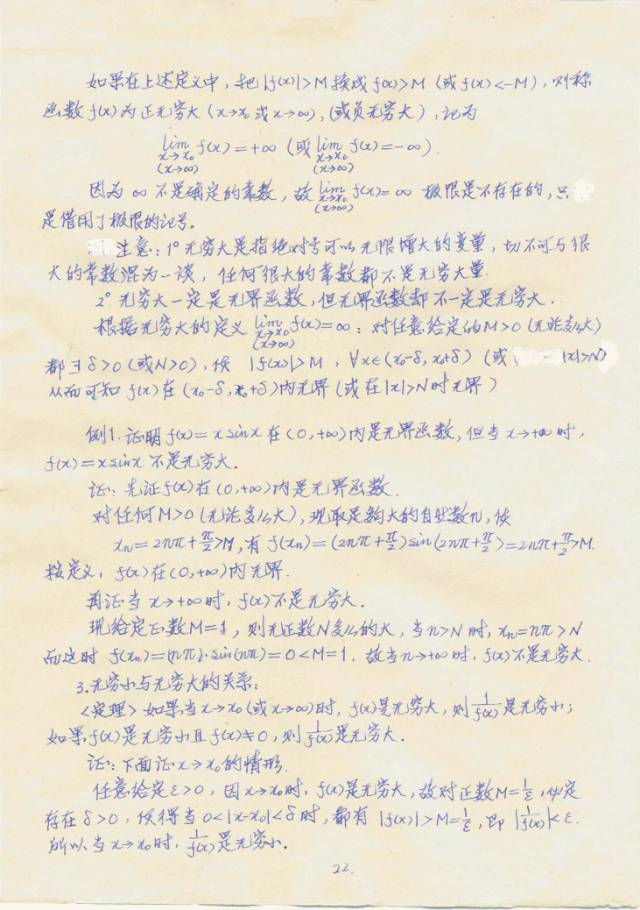 如果在上述定义中，把|f(x)|>M换成f(x)>M（或f(x)<-M），则称
函数f(x)为正无穷大（x→x₀或x→∞），（或负无穷大），记为
lim f(x)=+∞（或lim f(x)=-∞）.
x→x₀ x→x₀
(x→∞) (x→∞)
因为∞不是确定的常数，故lim f(x)=∞极限是不存在的，只
x→x₀
(x→∞)
是借用了极限的记号。
注意：1°无穷大是指绝对号可以无限增大的变量，切不可与很
大的常数混为一谈，任何很大的常数都不是无穷大量.
2°无穷大一定是无界函数，但无界函数却不一定是无穷大.
根据无穷大的定义lim f(x)=∞：对任意给定的M>0（无论多么大）
x→x₀
(x→∞)
都∃δ>0（或N>0），使|f(x)|>M，∀x∈(x₀-δ, x₀+δ)（或 |x|>N）
从而可知f(x)在(x₀-δ, x₀+δ)内无界（或在|x|>N时无界）
例1.证明f(x)=x sinx在(0,+∞)内是无界函数，但当x→+∞时，
f(x)=x sinx不是无穷大.
证：先证f(x)在(0,+∞)内是无界函数.
对任何M>0（无论多么大），现取足够大的自然数n，使
xₙ=2nπ+π/2>M，有f(xₙ)=(2nπ+π/2)sin(2nπ+π/2)=2nπ+π/2>M.
按定义，f(x)在(0,+∞)内无界.
再证当x→+∞时，f(x)不是无穷大.
现给定正数M=1，则无论正数N多么的大，当n>N时，xₙ=nπ>N
而这时f(xₙ)=(nπ)·sin(nπ)=0<M=1，故当n→+∞时，f(x)不是无穷大.
3.无穷小与无穷大的关系：
<定理>如果当x→x₀（或x→∞）时，f(x)是无穷大，则1/f(x)是无穷小；
如果f(x)是无穷小且f(x)≠0，则1/f(x)是无穷大.
证：下面证x→x₀的情形.
任意给定ε>0，因x→x₀时，f(x)是无穷大，故对正数M=1/ε，必定
存在δ>0，使得当0<|x-x₀|<δ时，都有|f(x)|>M=1/ε，即|1/f(x)|<ε.
所以当x→x₀时，1/f(x)是无穷小.
22.